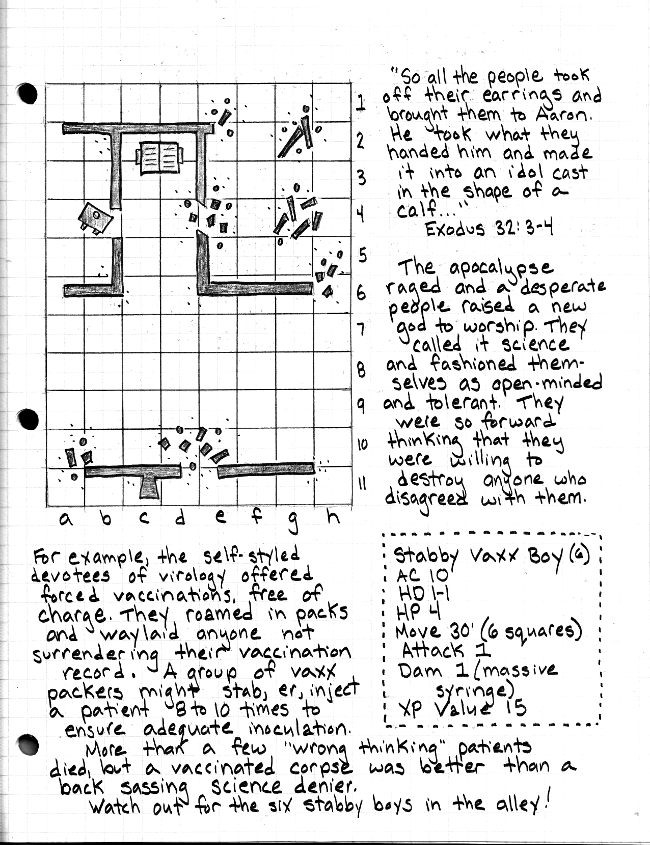 "So all the people took
off their earrings and
brought them to Aaron.
He took what they
handed him and made
it into an idol cast
in the shape of a
calf..."
Exodus 32:3-4
The apocalypse
raged and a desperate
people raised a new
god to worship. They
called it science
and fashioned them-
selves as open-minded
and tolerant. They
were so forward
thinking that they
were willing to
destroy anyone who
disagreed with them.
1
2
3
4
5
6
7
8
9
10
11
a b c d e f g h
For example, the self-styled
devotees of virology offered
forced vaccinations, free of
charge. They roamed in packs
and waylaid anyone not
surrendering their vaccination
record. A group of vaxx
packers might stab, er, inject
a patient 8 to 10 times to
ensure adequate inoculation.
More than a few "wrong thinking" patients
died, but a vaccinated corpse was better than a
back sassing science denier.
Watch out for the six stabby boys in the alley!
Stabby Vaxx Boy (6)
AC 10
HD 1-1
HP 4
Move 30' (6 squares)
Attack 1
Dam 1 (massive
syringe)
XP Value 15